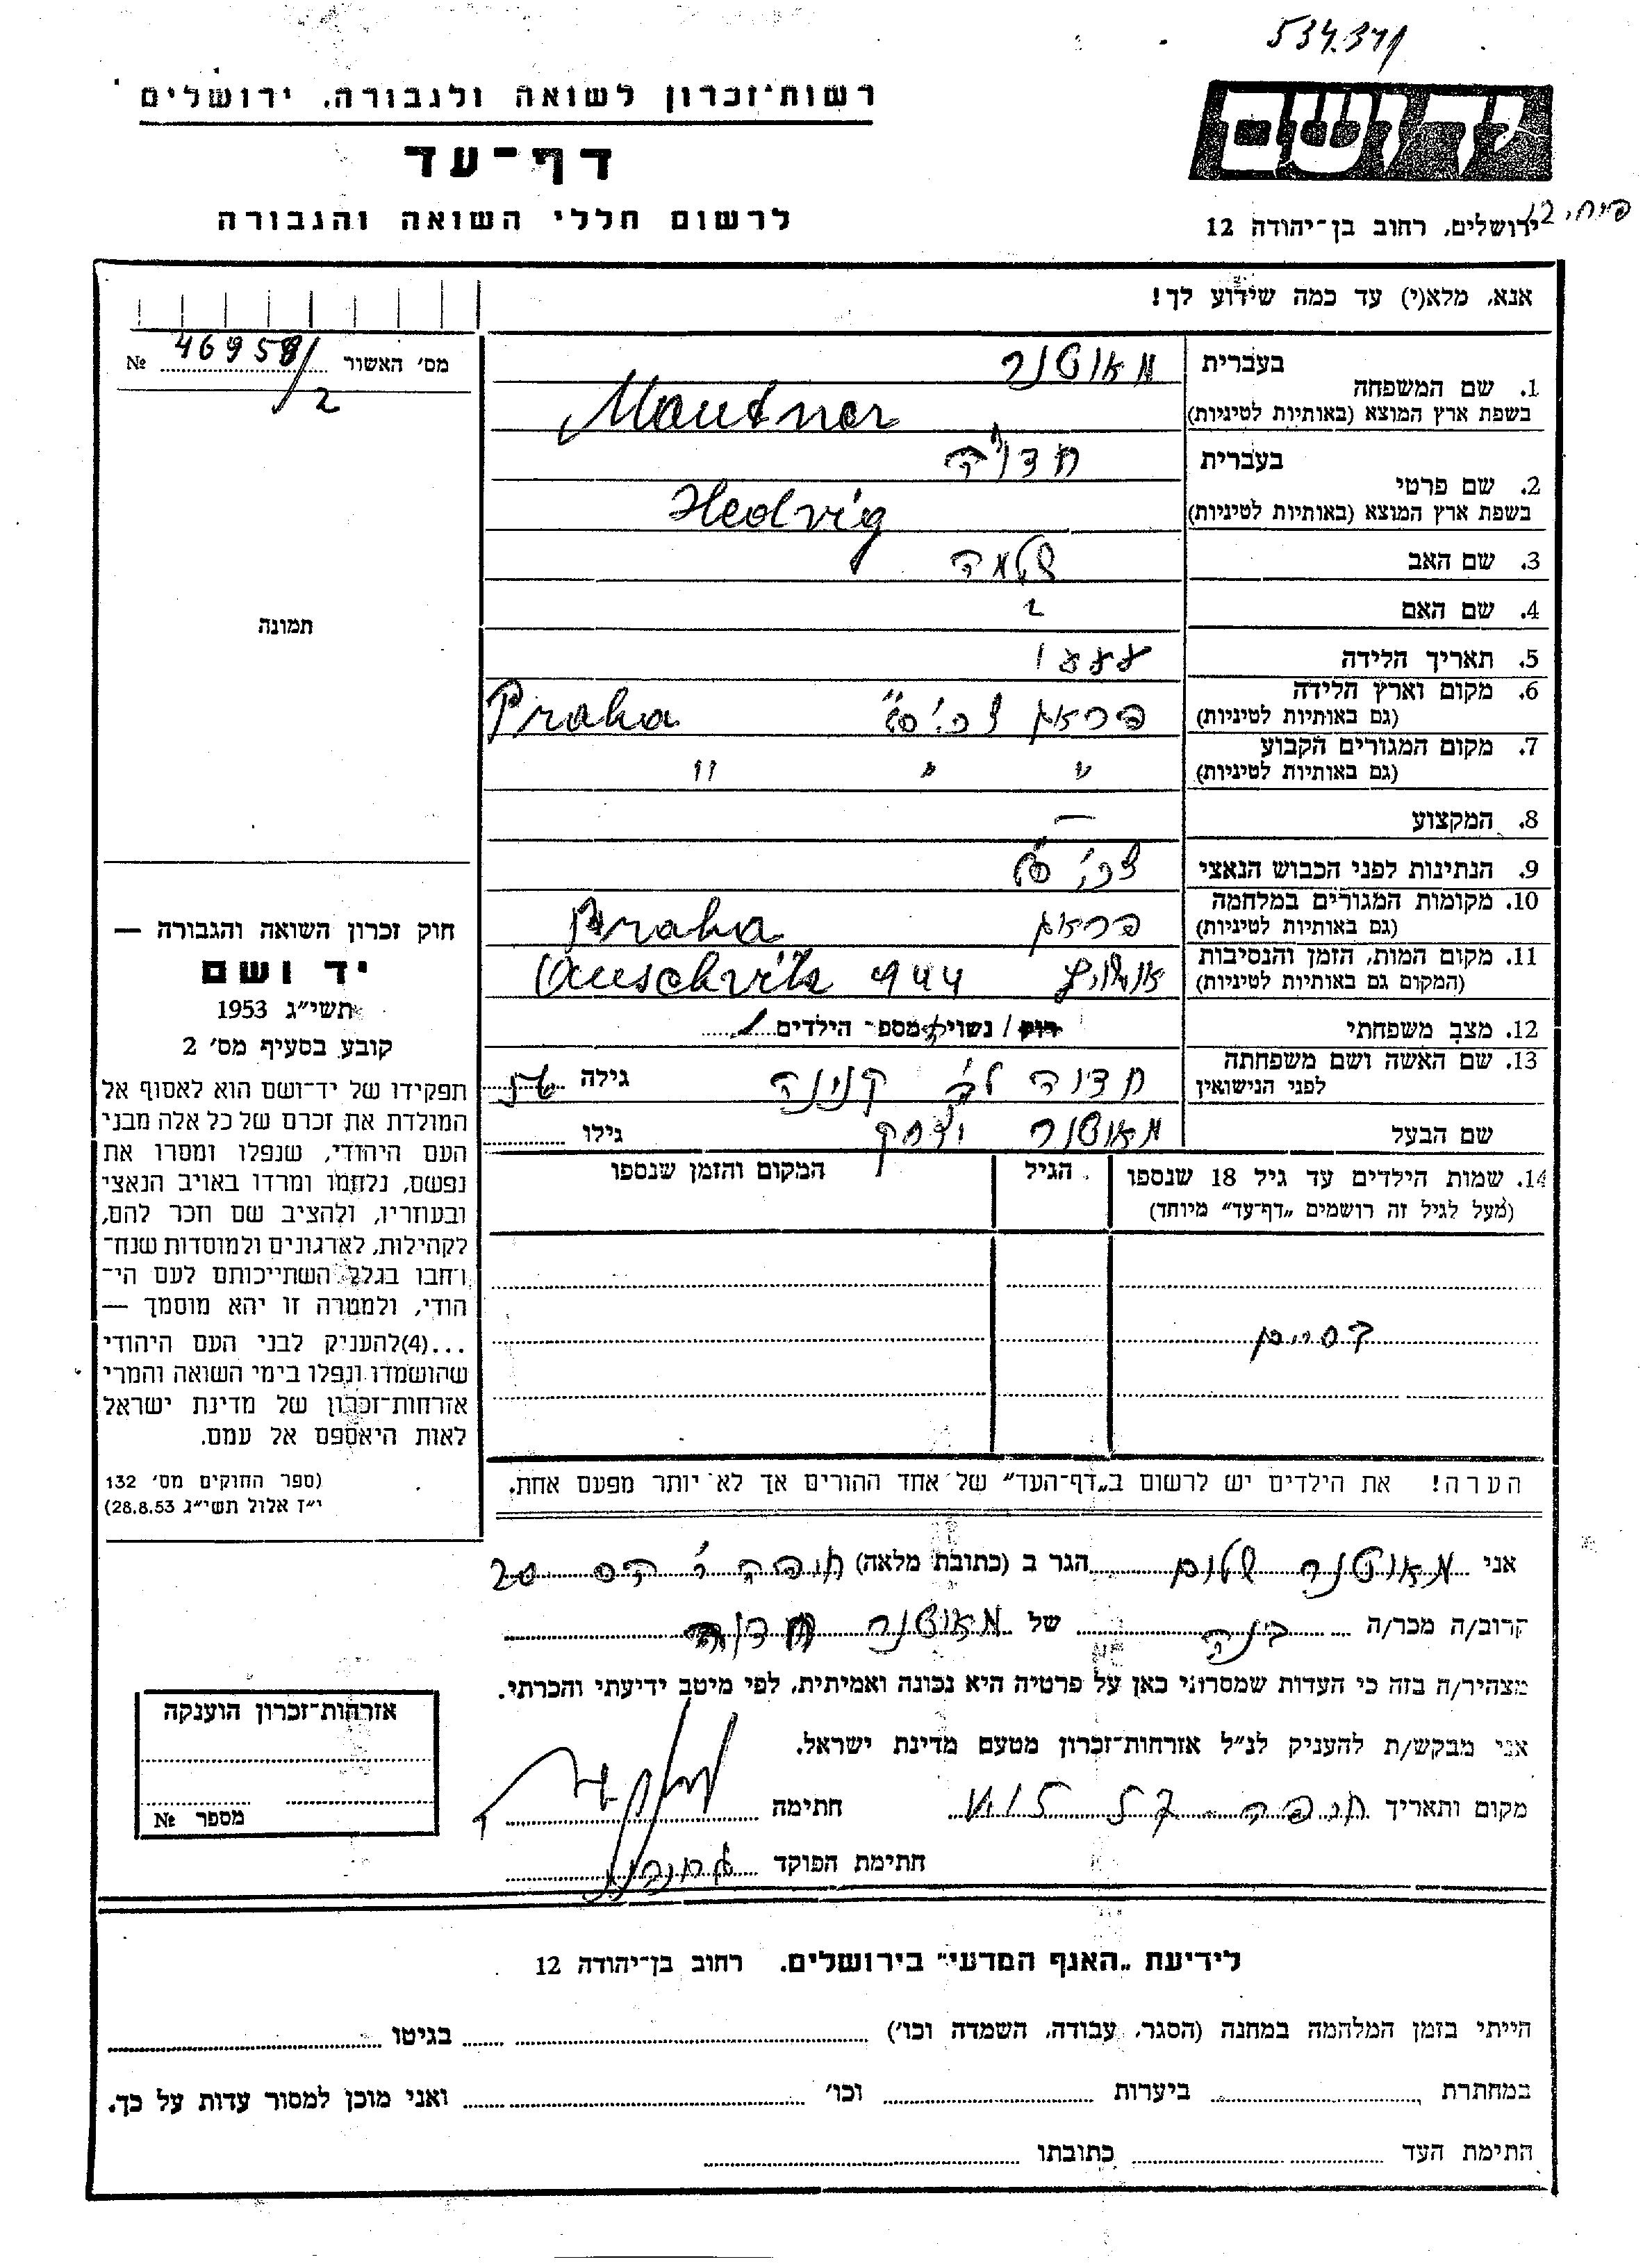 534.341
רשות־זכרון לשואה ולגבורה, ירושלים
יד ושם
דף־עד
לרשום חללי השואה והגבורה
ירושלים, רחוב בן־יהודה 12
אנא, מלא(י) עד כמה שידוע לך!
מס׳ האשור 46958/2 №
1. שם המשפחה
בעברית מאוטנר
בשפת ארץ המוצא (באותיות לטיניות) Mautner
2. שם פרטי
בעברית חדוה
בשפת ארץ המוצא (באותיות לטיניות) Hedvig
3. שם האב שלמה
4. שם האם
5. תאריך הלידה 1888
6. מקום וארץ הלידה
(גם באותיות לטיניות) פראג צ׳כיה Praha
7. מקום המגורים הקבוע
(גם באותיות לטיניות) " " "
8. המקצוע —
9. הנתינות לפני הכבוש הנאצי
10. מקומות המגורים במלחמה
(גם באותיות לטיניות) פראג Praha
11. מקום המות, הזמן והנסיבות
(המקום גם באותיות לטיניות) אושויץ 944 Auschvitz
12. מצב משפחתי רווק / נשוי מספר הילדים 1
13. שם האשה ושם משפחתה
לפני הנישואין חדוה לב׳ גילה 56
שם הבעל מאוטנר יצחק גילו
14. שמות הילדים עד גיל 18 שנספו
(מעל לגיל זה רושמים „דף־עד" מיוחד)
הגיל
המקום והזמן שנספו
הערה! את הילדים יש לרשום ב„דף־העד" של אחד ההורים אך לא יותר מפעם אחת.
תמונה
חוק זכרון השואה והגבורה —
יד ושם
תשי״ג 1953
קובע בסעיף מס׳ 2
תפקידו של יד־ושם הוא לאסוף אל
המולדת את זכרם של כל אלה מבני
העם היהודי, שנפלו ומסרו את
נפשם, נלחמו ומרדו באויב הנאצי
ובעוזריו, ולהציב שם וזכר להם,
לקהילות, לארגונים ולמוסדות שנח־
רחבו בגלל השתייכותם לעם הי־
הודי, ולמטרה זו יהא מוסמך —
...(4)להעניק לבני העם היהודי
שהושמדו ונפלו בימי השואה והמרי
אזרחות־זכרון של מדינת ישראל
לאות היאספם אל עמם.
(ספר החוקים מס׳ 132
י״ז אלול תשי״ג 28.8.53)
אני מאוטנר שלום הגר ב (כתובת מלאה) חיפה 20
קרוב/ה מכר/ה בנה של מאוטנר חדוה
מצהיר/ה בזה כי העדות שמסרתי כאן על פרטיה היא נכונה ואמיתית, לפי מיטב ידיעתי והכרתי.
אני מבקש/ת להעניק לנ״ל אזרחות־זכרון מטעם מדינת ישראל.
מקום ותאריך חיפה חתימה
חתימת הפוקד
אזרחות־זכרון הוענקה
מספר №
לידיעת „האנף המדעי" בירושלים. רחוב בן־יהודה 12
הייתי בזמן המלחמה במחנה (הסגר, עבודה, השמדה וכו׳) בגיטו
במחתרת ביערות וכו׳ ואני מוכן למסור עדות על כך.
חתימת העד כתובתו